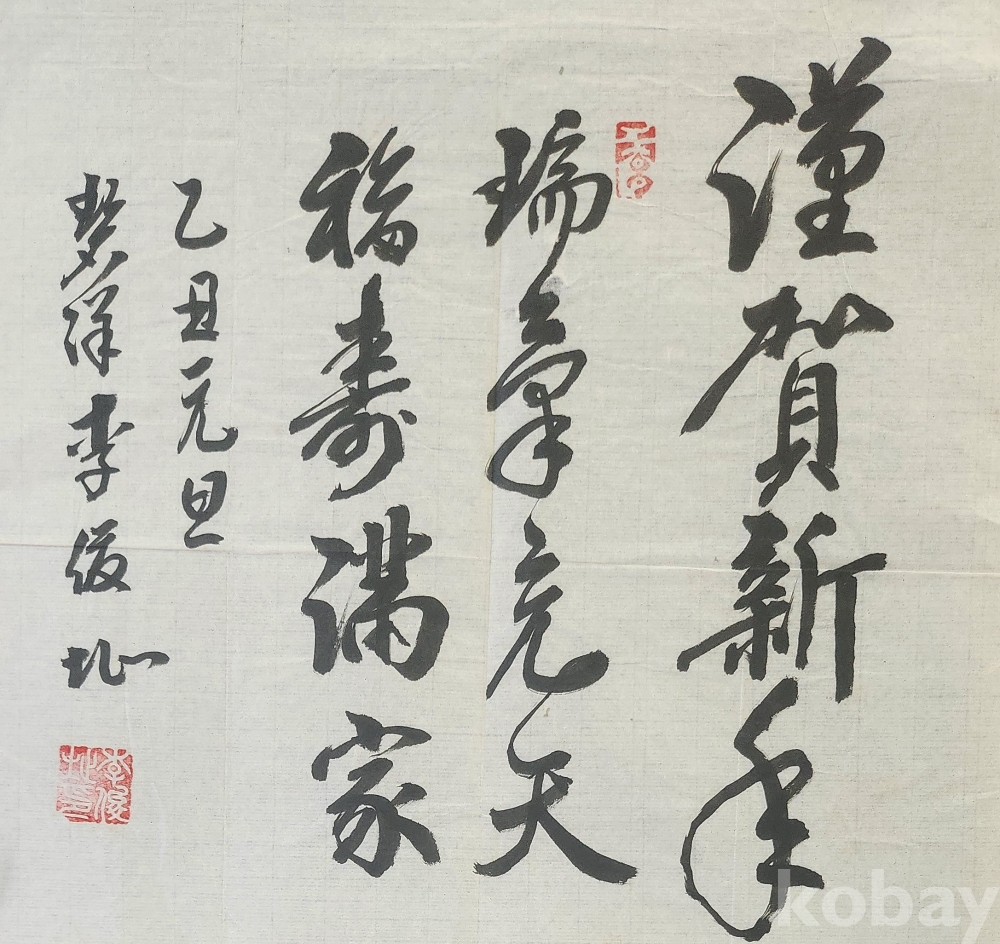 謹賀新年
瑞氣充天
福壽滿家
乙丑元旦
碧祥李俊址
kobay